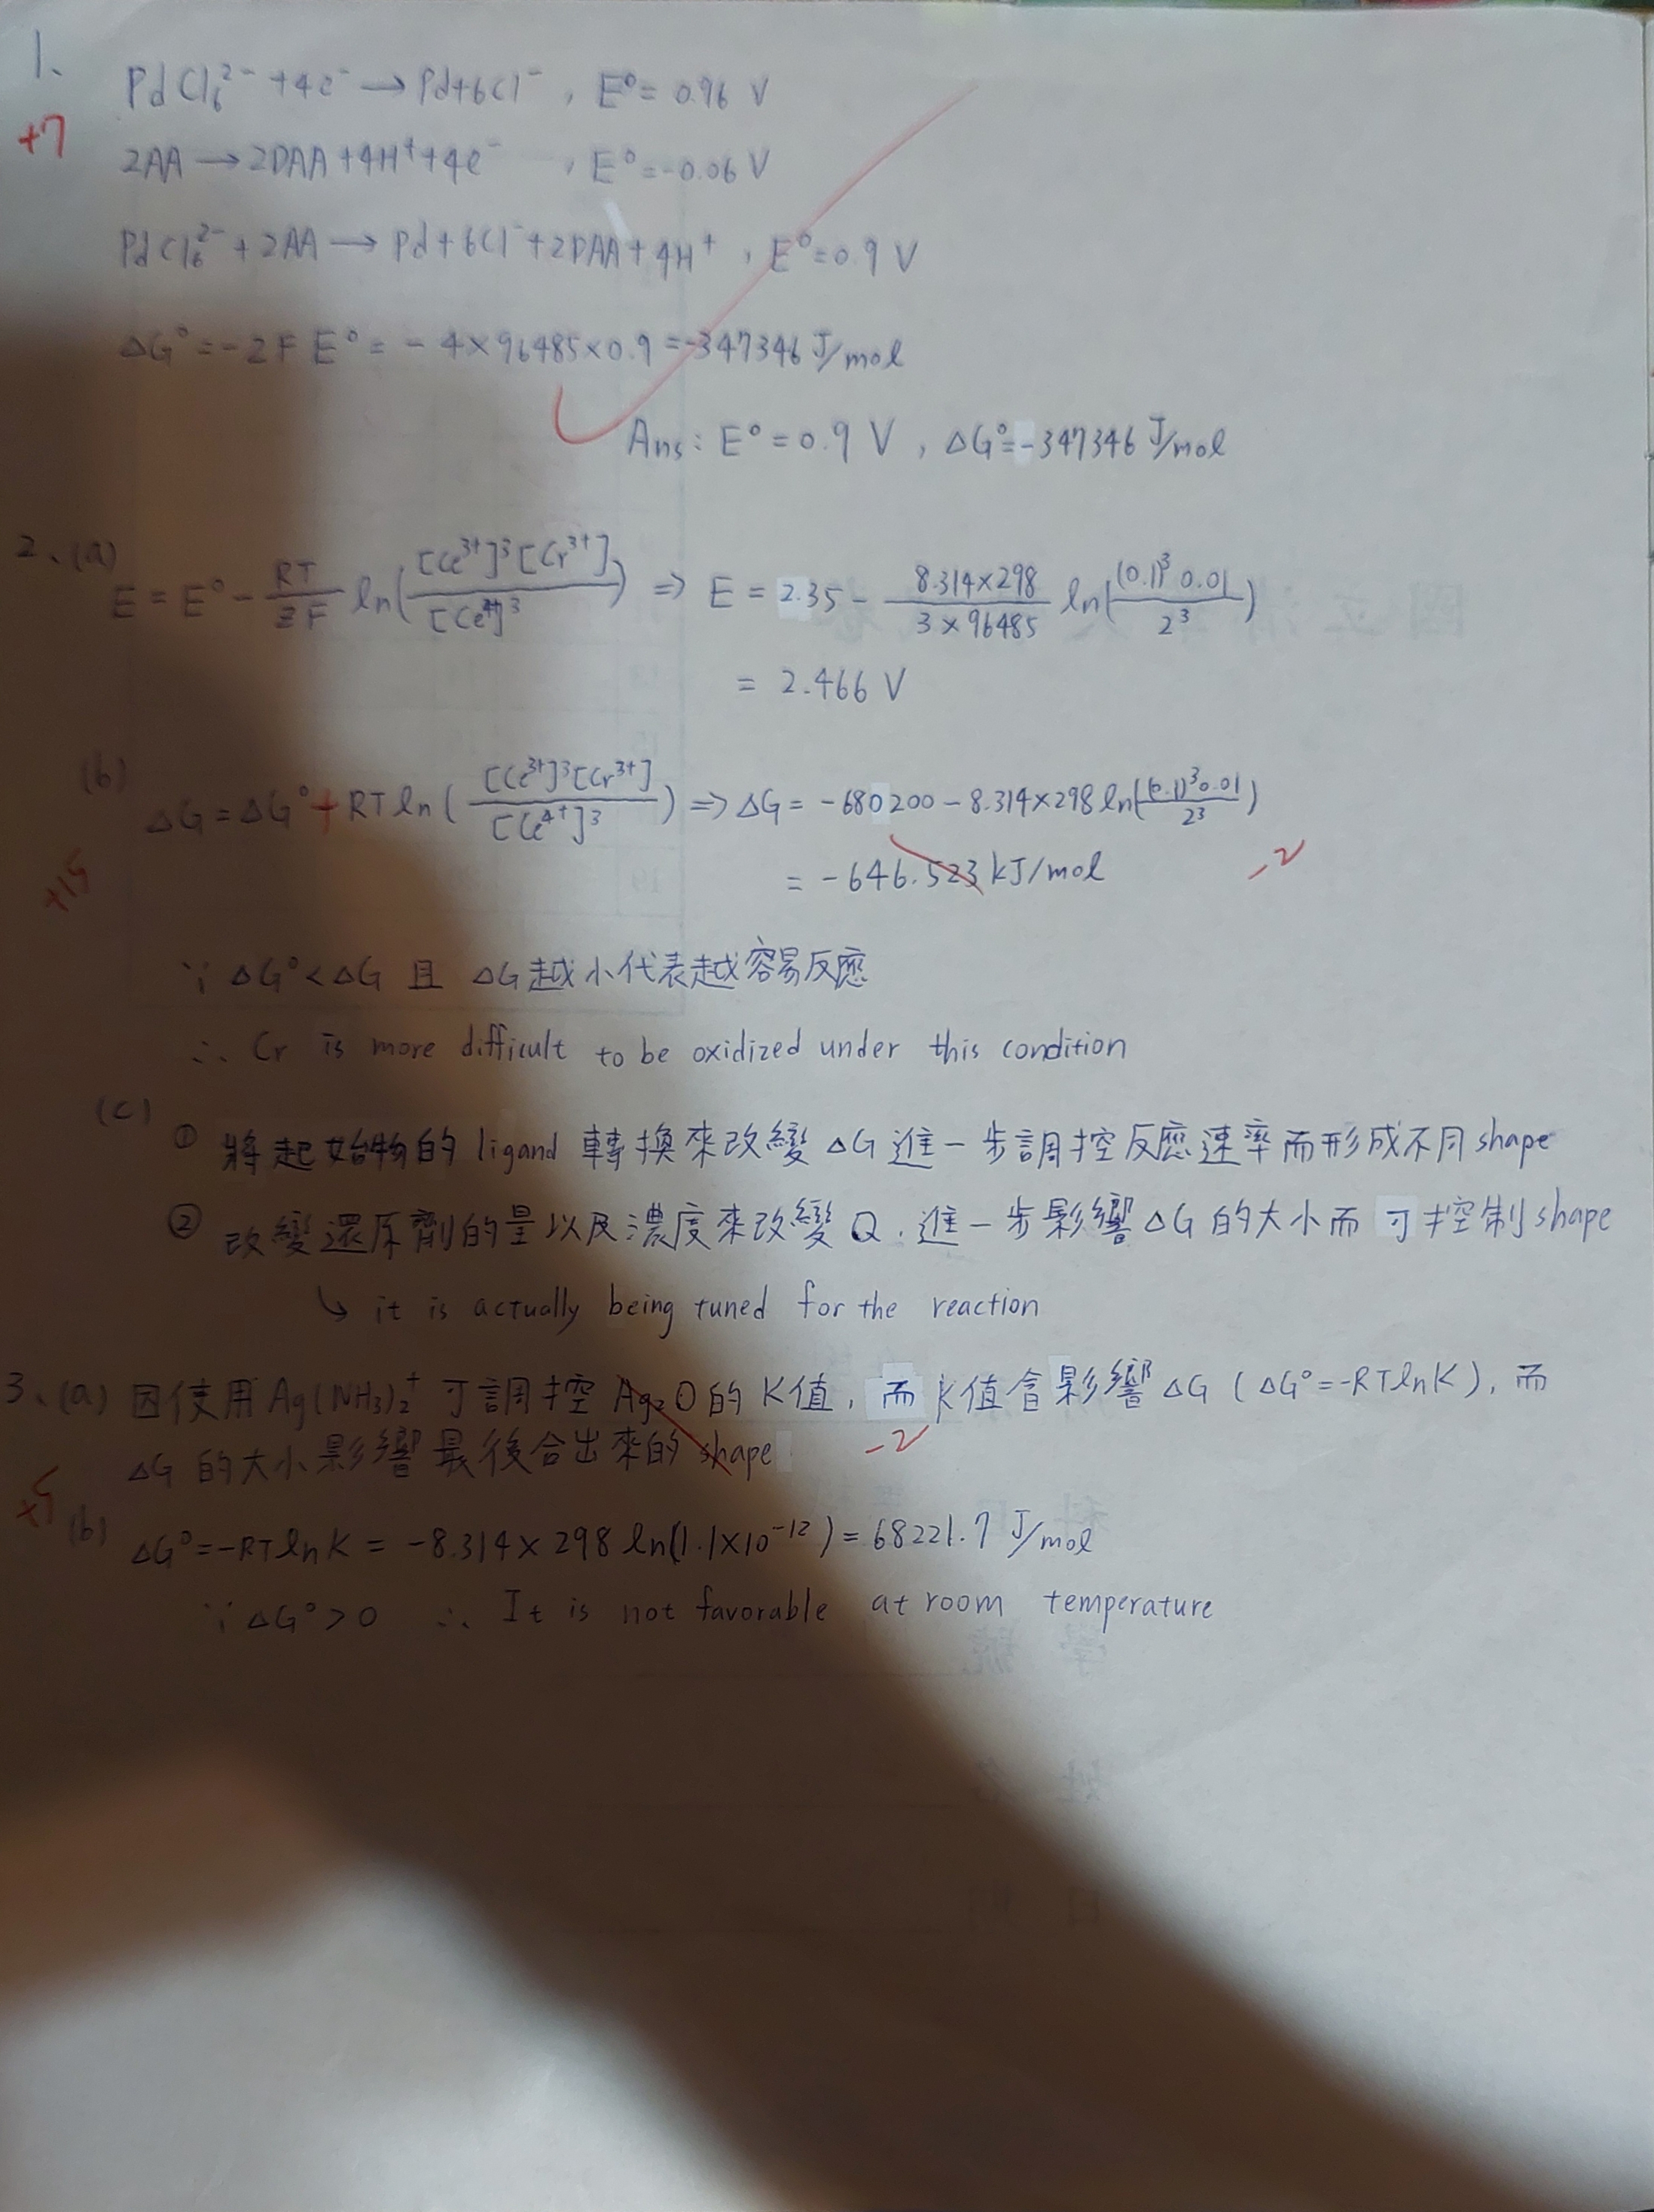 1.
PdCl₆²⁻ + 4e⁻ → Pd + 6Cl⁻ , E° = 0.96 V
+7
2AA → 2DAA + 4H⁺ + 4e⁻ , E° = -0.06 V
PdCl₆²⁻ + 2AA → Pd + 6Cl⁻ + 2DAA + 4H⁺ , E° = 0.9 V
ΔG° = -ZFE° = -4×96485×0.9 = -347346 J/mol
Ans: E° = 0.9 V , ΔG° = -347346 J/mol
2、(a)
E = E° - RT/ZF ln([Ce³⁺]³[Cr³⁺]/[Ce⁴⁺]³) ⇒ E = 2.35 - 8.314×298/3×96485 ln((0.1)³0.01/2³)
= 2.466 V
(b)
ΔG = ΔG° + RT ln([Ce³⁺]³[Cr³⁺]/[Ce⁴⁺]³) ⇒ ΔG = -680200 - 8.314×298 ln((0.1)³0.01/2³)
+15
= -646.523 kJ/mol -2
∵ ΔG° < ΔG 且 ΔG越小代表越容易反應
∴ Cr is more difficult to be oxidized under this condition
(c)
① 將起始物的 ligand 轉換來改變 ΔG 進一步調控反應速率而形成不同 shape
② 改變還原劑的量以及濃度來改變 Q, 進一步影響 ΔG 的大小而可控制 shape
↳ it is actually being tuned for the reaction
3、(a) 因使用 Ag(NH₃)₂⁺ 可調控 Ag₂O 的 K值, 而 K值會影響 ΔG (ΔG° = -RTlnK), 而
ΔG 的大小影響最後合出來的 shape -2
+5
(b) ΔG° = -RTlnK = -8.314×298 ln(1.1×10⁻¹²) = 68221.7 J/mol
∵ ΔG° > 0 ∴ It is not favorable at room temperature